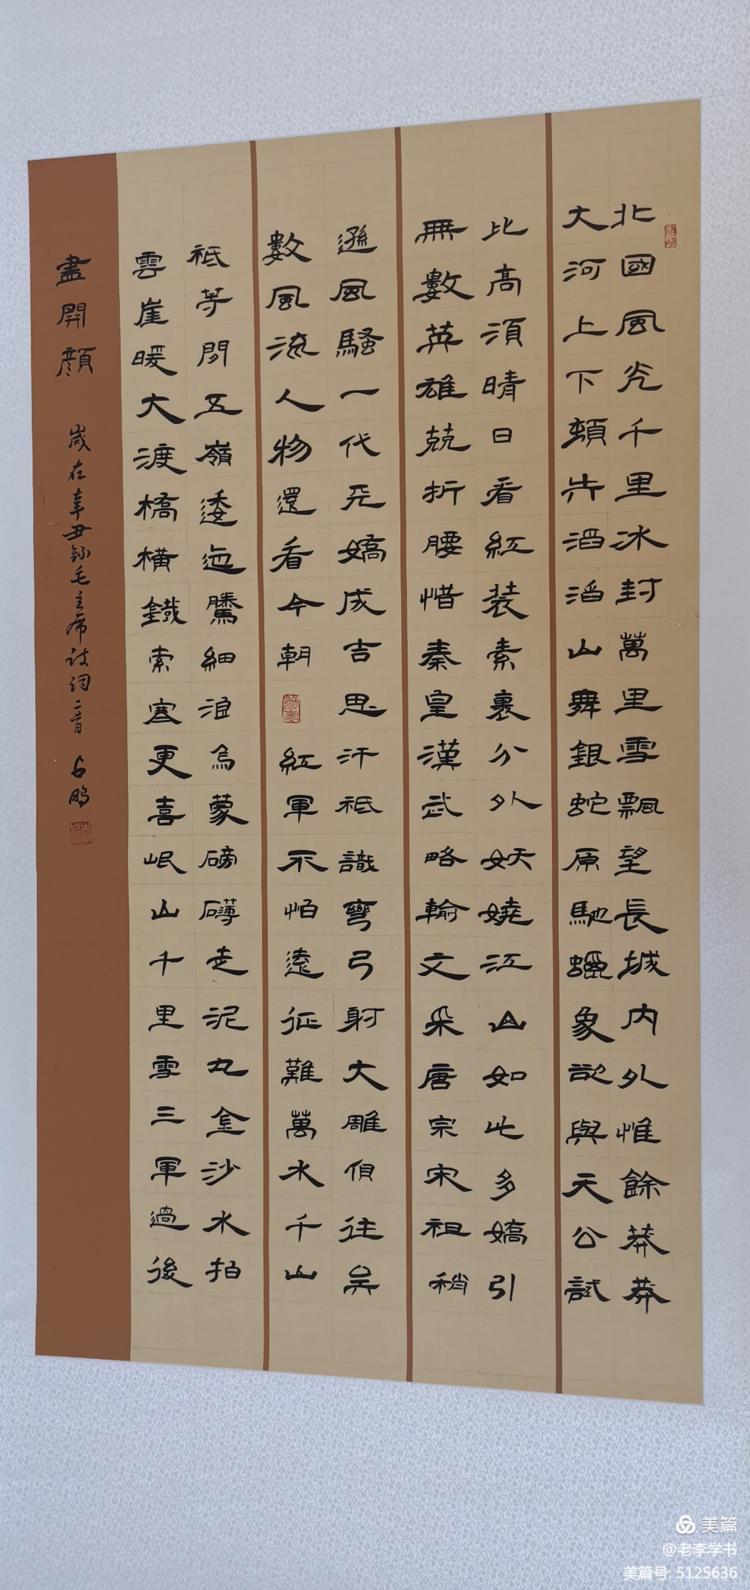 北國風光千里冰封萬里雪飄望長城內外惟餘莽莽
大河上下頓失滔滔山舞銀蛇原馳蠟象欲與天公試
比高須晴日看紅裝素裹分外妖嬈江山如此多嬌引
無數英雄競折腰惜秦皇漢武略輸文采唐宗宋祖稍
遜風騷一代天嬌成吉思汗祇識彎弓射大雕俱往矣
數風流人物還看今朝 紅軍不怕遠征難萬水千山
祇等閒五嶺逶迤騰細浪烏蒙磅礴走泥丸金沙水拍
雲崖暖大渡橋橫鐵索寒更喜岷山千里雪三軍過後
盡開顏 歲在辛丑錄毛主席诗词二首 占鵬
美篇
@老李学书
美篇号: 5125636